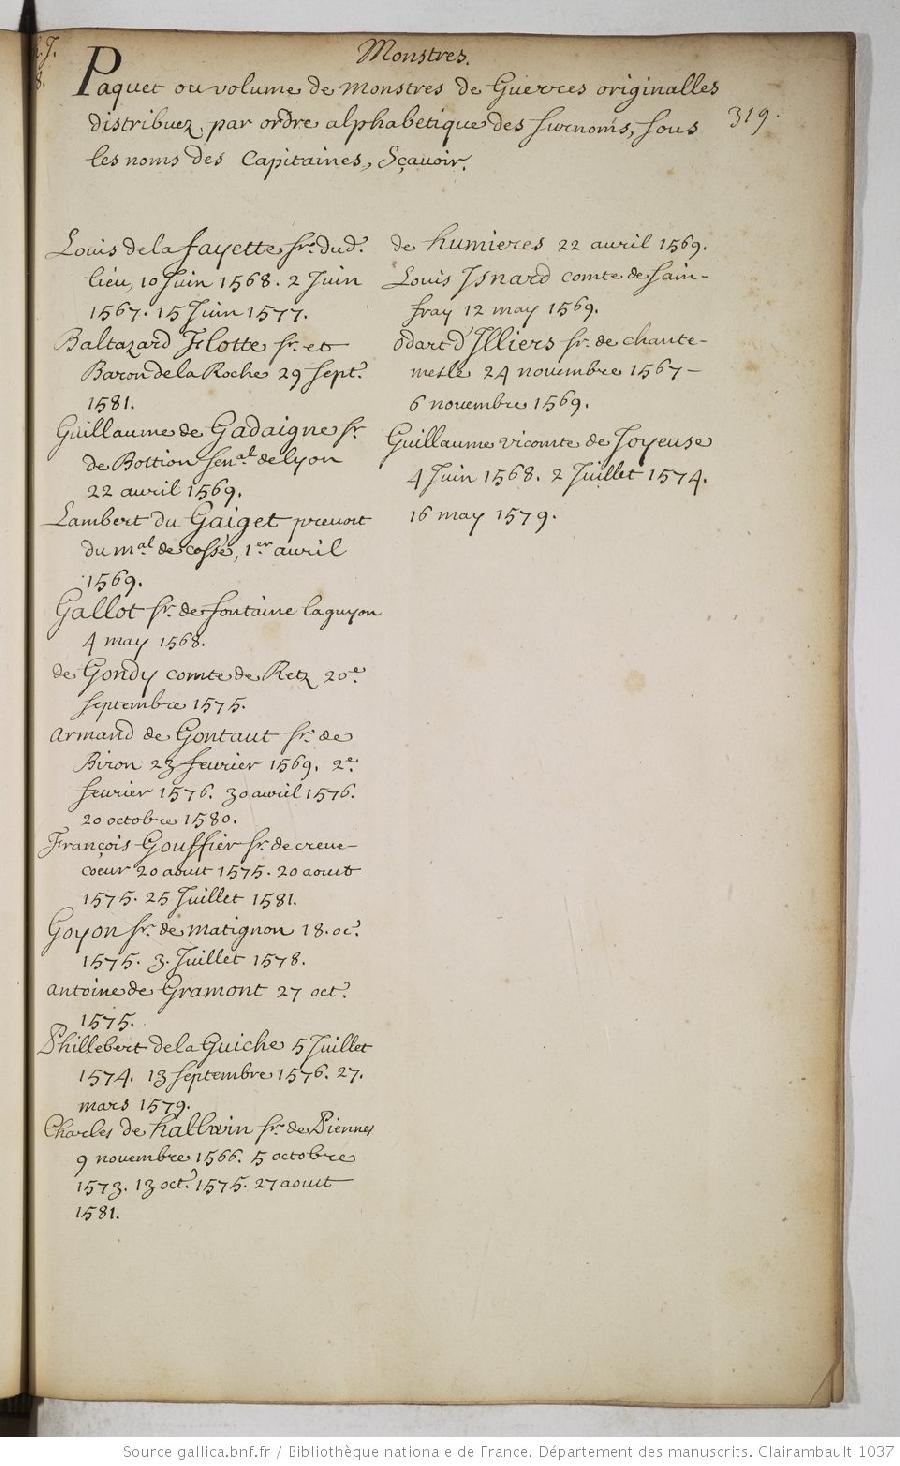 Monstres.
Paquet ou volume de monstres de Guerres originalles
distribuez par ordre alphabetique des surnoms, sous
les noms des Capitaines, Sçavoir.
319.
Louis de la fayette sr. dud.
lieu, 10 Juin 1568. 2 Juin
1567. 15 Juin 1577.
Baltazard Flotte sr. et
Baron de la Roche 29 Sept.
1581.
Guillaume de Gadaigne sr.
de Bottion Senal. de lyon
22 avril 1569.
Lambert du Gaiget prevost
du mal. de cossé, 1er avril
1569.
Gallot sr. de fontaine laguyon
4 may 1568.
de Gondy comte de Retz 20e.
septembre 1575.
armand de Gontaut sr. de
Biron 23 fevrier 1569. 2e.
fevrier 1576. 30 avril 1576.
20 octobre 1580.
François Gouffier sr. de creve-
coeur 20 aoust 1575. 20 aoust
1575. 25 Juillet 1581.
Goyon sr. de matignon 18. oc.
1575. 3. Juillet 1578.
antoine de Gramont 27 oct.
1575.
Phillebert de la Guiche 5 Juillet
1574. 13 septembre 1576. 27.
mars 1579.
Charles de hallwin sr. de Piennes
9 novembre 1566. 5 octobre
1573. 13 oct. 1575. 27 aoust
1581.
de humieres 22 avril 1569.
Louis Isnard comte de sain-
fray 12 may 1569.
odart d'Illiers sr. de chante-
mesle 24 novembre 1567 -
6 novembre 1569.
Guillaume vicomte de Joyeuse
4 Juin 1568. 2 Juillet 1574.
16 may 1579.
Source gallica.bnf.fr / Bibliothèque nationale de France. Département des manuscrits. Clairambault 1037